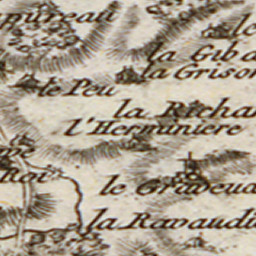 le
la Gib
la Grison
le Peu
la Richar
l'Herminiere
le Graveua
la Ravaudi